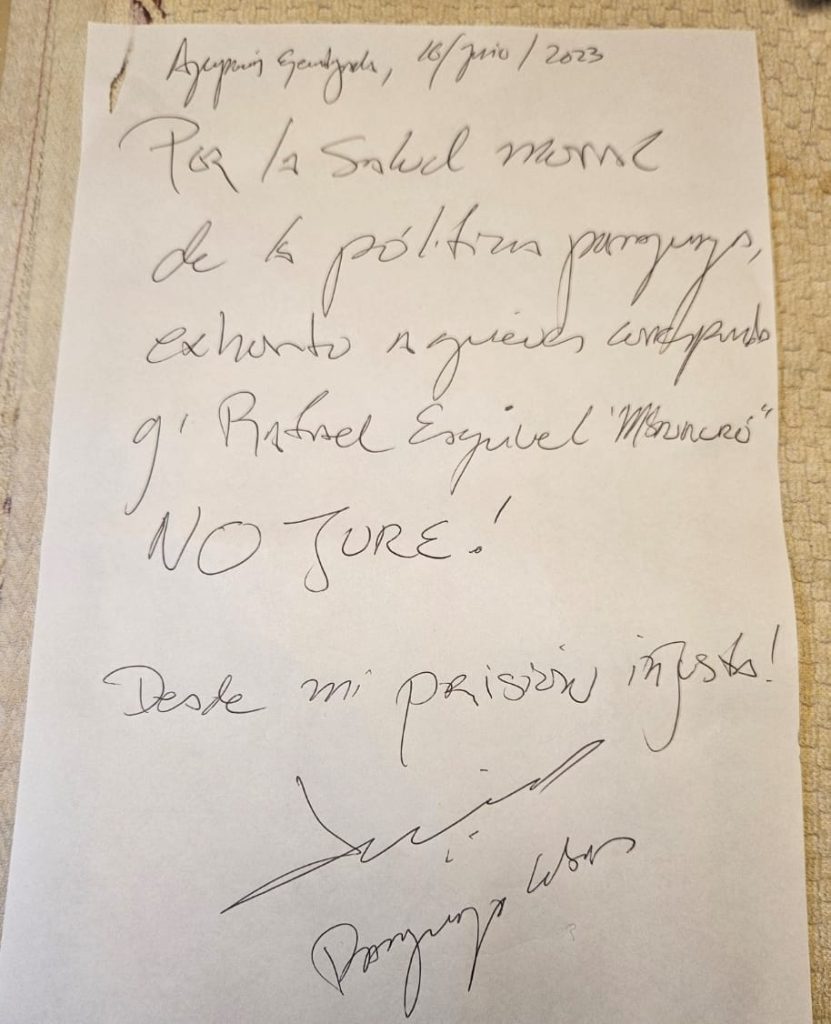 Agrupación Especializada, 16/junio/2023
Por la salud moral
de la pólitica paraguaya,
exhorto a quienes corresponda
q' Rafael Esquivel "Mbururú"
NO JURE!
Desde mi prisión injusta!
Paraguayo Cubas